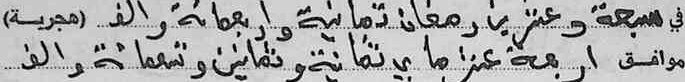 في سبعة وعشرين رمضان ثمانية وأربعمائة والف (هجرية)
موافق أربعة عشر ماي ثمانية وثمانين وتسعمائة والف